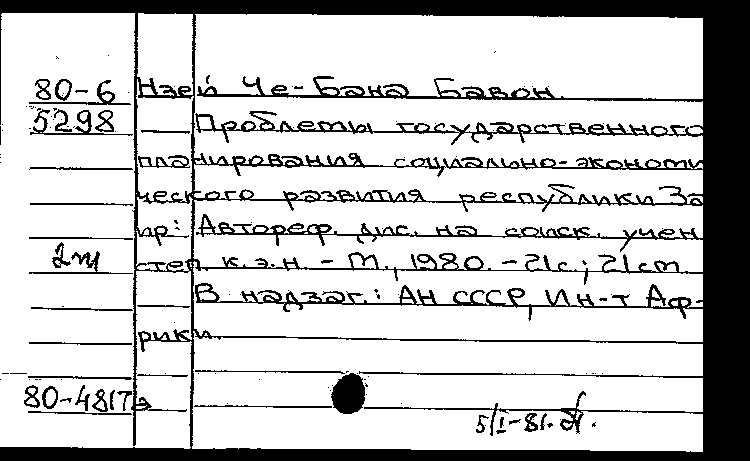 80-6 Нзей Че-Бана Бавон.
5298 Проблемы государственного
планирования социально-экономи
ческого развития республики За
ир: Автореф. дис. на соиск. учен
2 т степ. к.э.н. - М., 1980. - 21с; 21см
В надзаг.: АН СССР, Ин-т Аф-
рики.
80-4817а
5/I-81.